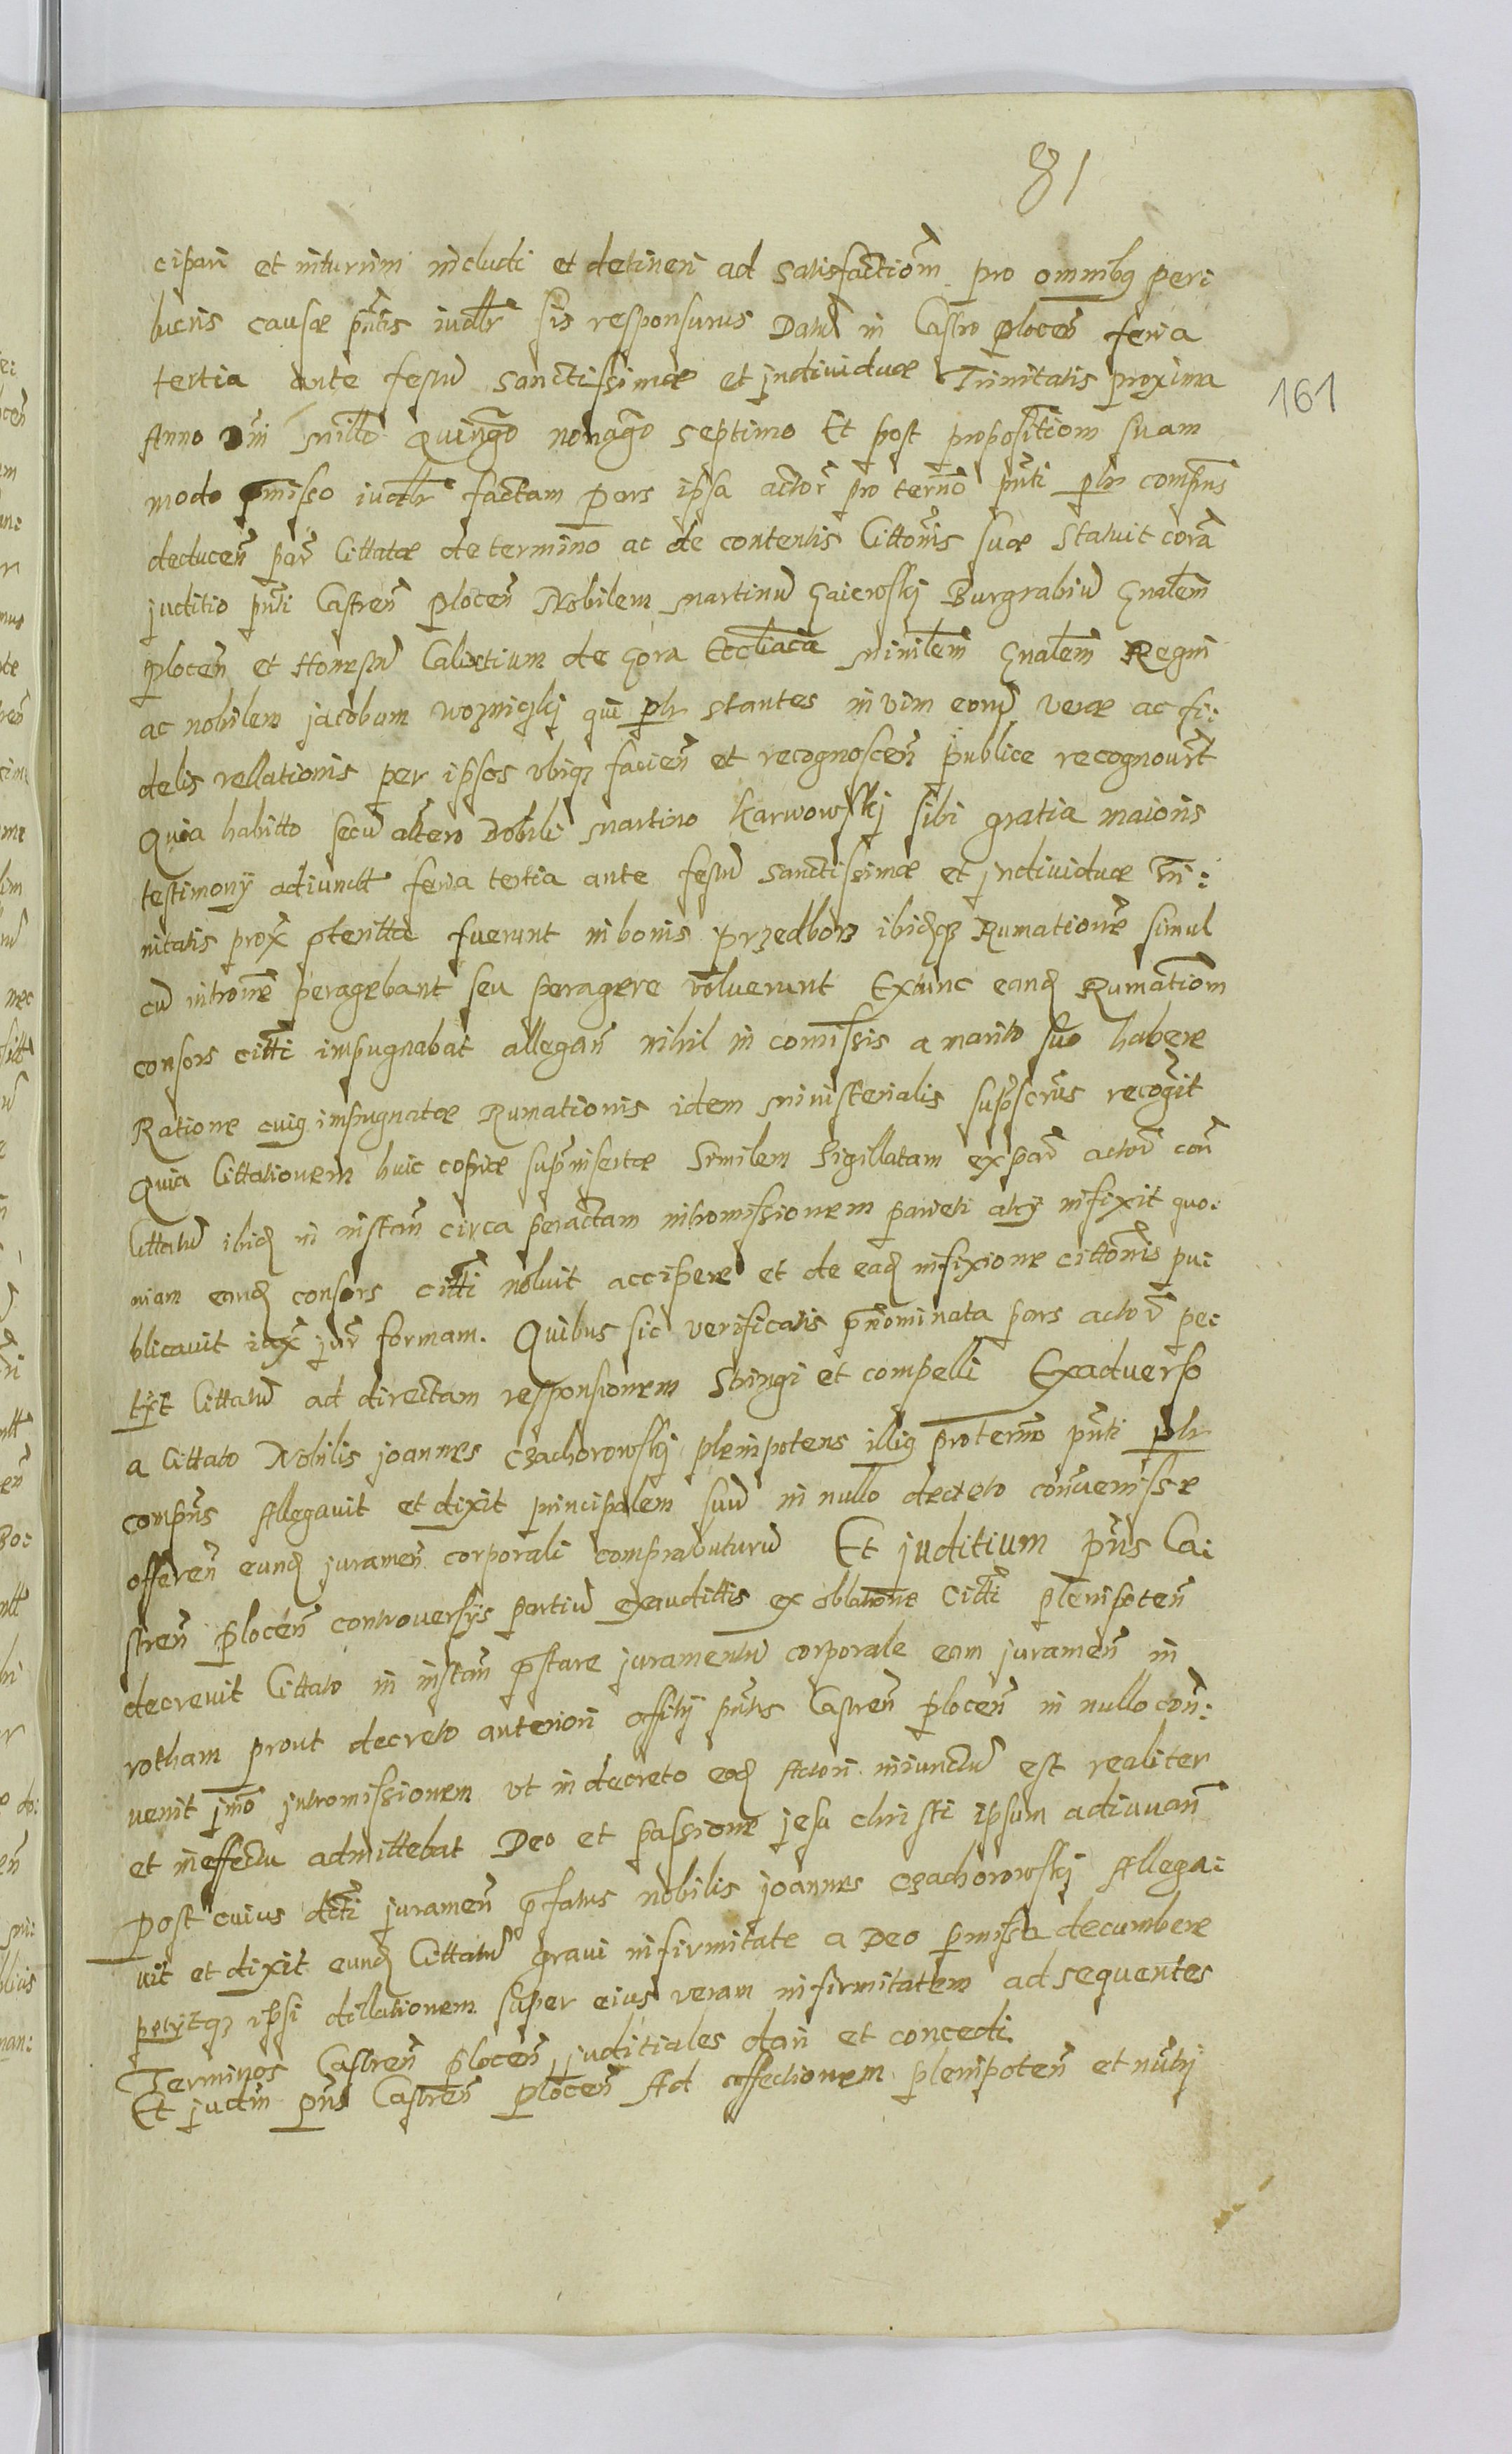 81
161
cipari et inturrim includi et detineri ad satisfactiom pro omnibq peri
lucris causæ pntis iudlr sis responsurus Datu in Castro plocen feria
tertia ante festu sanctissimæ et individuæ Trinitatis proxima
Anno Dni Millo Quingo nonago septimo Et post propositiom suam
modo pmisso iudlr factam pars ipsa actor pro termo pnti plr compns
deducen par Cittatæ de termino ac de contentis Cittonis suæ statuit cora
juditio pnti Castren plocen Nobilem Martinu Gaiewskj Burgrabiu Gnalem
plocen et Honestu Calixtium de Gora Eccliacia Minilem Gnalem Regni
ac nobilem jacobum wozniczkj qui plr stantes in vim eoru veræ ac fi:
delis rellationis per ipsos ubiq facien et recognoscen publice recognourt
Quia habitto secu altero Nobili Martino Karwowskj sibi gratia maioris
testimonÿ adiunctt feria tertia ante festu sanctissimæ et individuæ Tri:
nitatis prox pteritta fuerunt in bonis przedborz ibidq Rumatione simul
cu introne peragebant seu peragere voluerunt Extunc eand Rumatiom
consors citti impugnabat allegan nihil in comissis a marito suo habere
Ratione cuiq impugnatæ Rumationis idem ministerialis suprscrus recogit
Quia Cittationem huic copiæ suprinsertæ similem Sigillatam ex par actor con
Cittatu ibid in instan circa peractam intromissionem parieti alcÿ infixit quo:
niam eand consors citti noluit accipere et de ead infixione cittonis pu:
blicavit iax jur formam. Quibus sic verificatis pnominata pars actor pe:
tÿt Cittatu ad directam responsionem stringi et compelli Exadverso
a Cittato Nobilis joannes Czachorowskj plenipotens illiq pro termo pnti plr
compns Allegavit et dixit principalem suu in nullo decreto convenisse
offeren eund juramen corporali comprobuturu Et juditium pns Ca:
stren plocen controversÿs partiu exaudittis ex oblatione Citti plenipoten
decrevit Cittato in instan pstare juramentu corporale eam juramen in
rotham prout decreto anteriori offitÿ pntis Castren plocen in nullo con:
venit jmo intromissionem ut in decreto eod Actori iniunctu est realiter
et in effectu admittebat Deo et passione jesu christi ipsum adiuuan
post cuius dtti juramen pfatus nobilis joannes Czachorowskj Allega:
vit et dixit eund Cittatu gravi infirmitate a Deo pmissa decumbere
petÿtq ipsi dillationem super eius veram infirmitatem ad sequentes
Terminos Castren plocen juditiales dari et concedi
Et judm pns Castren plocen Ad affectionem plenipoten et nutÿ